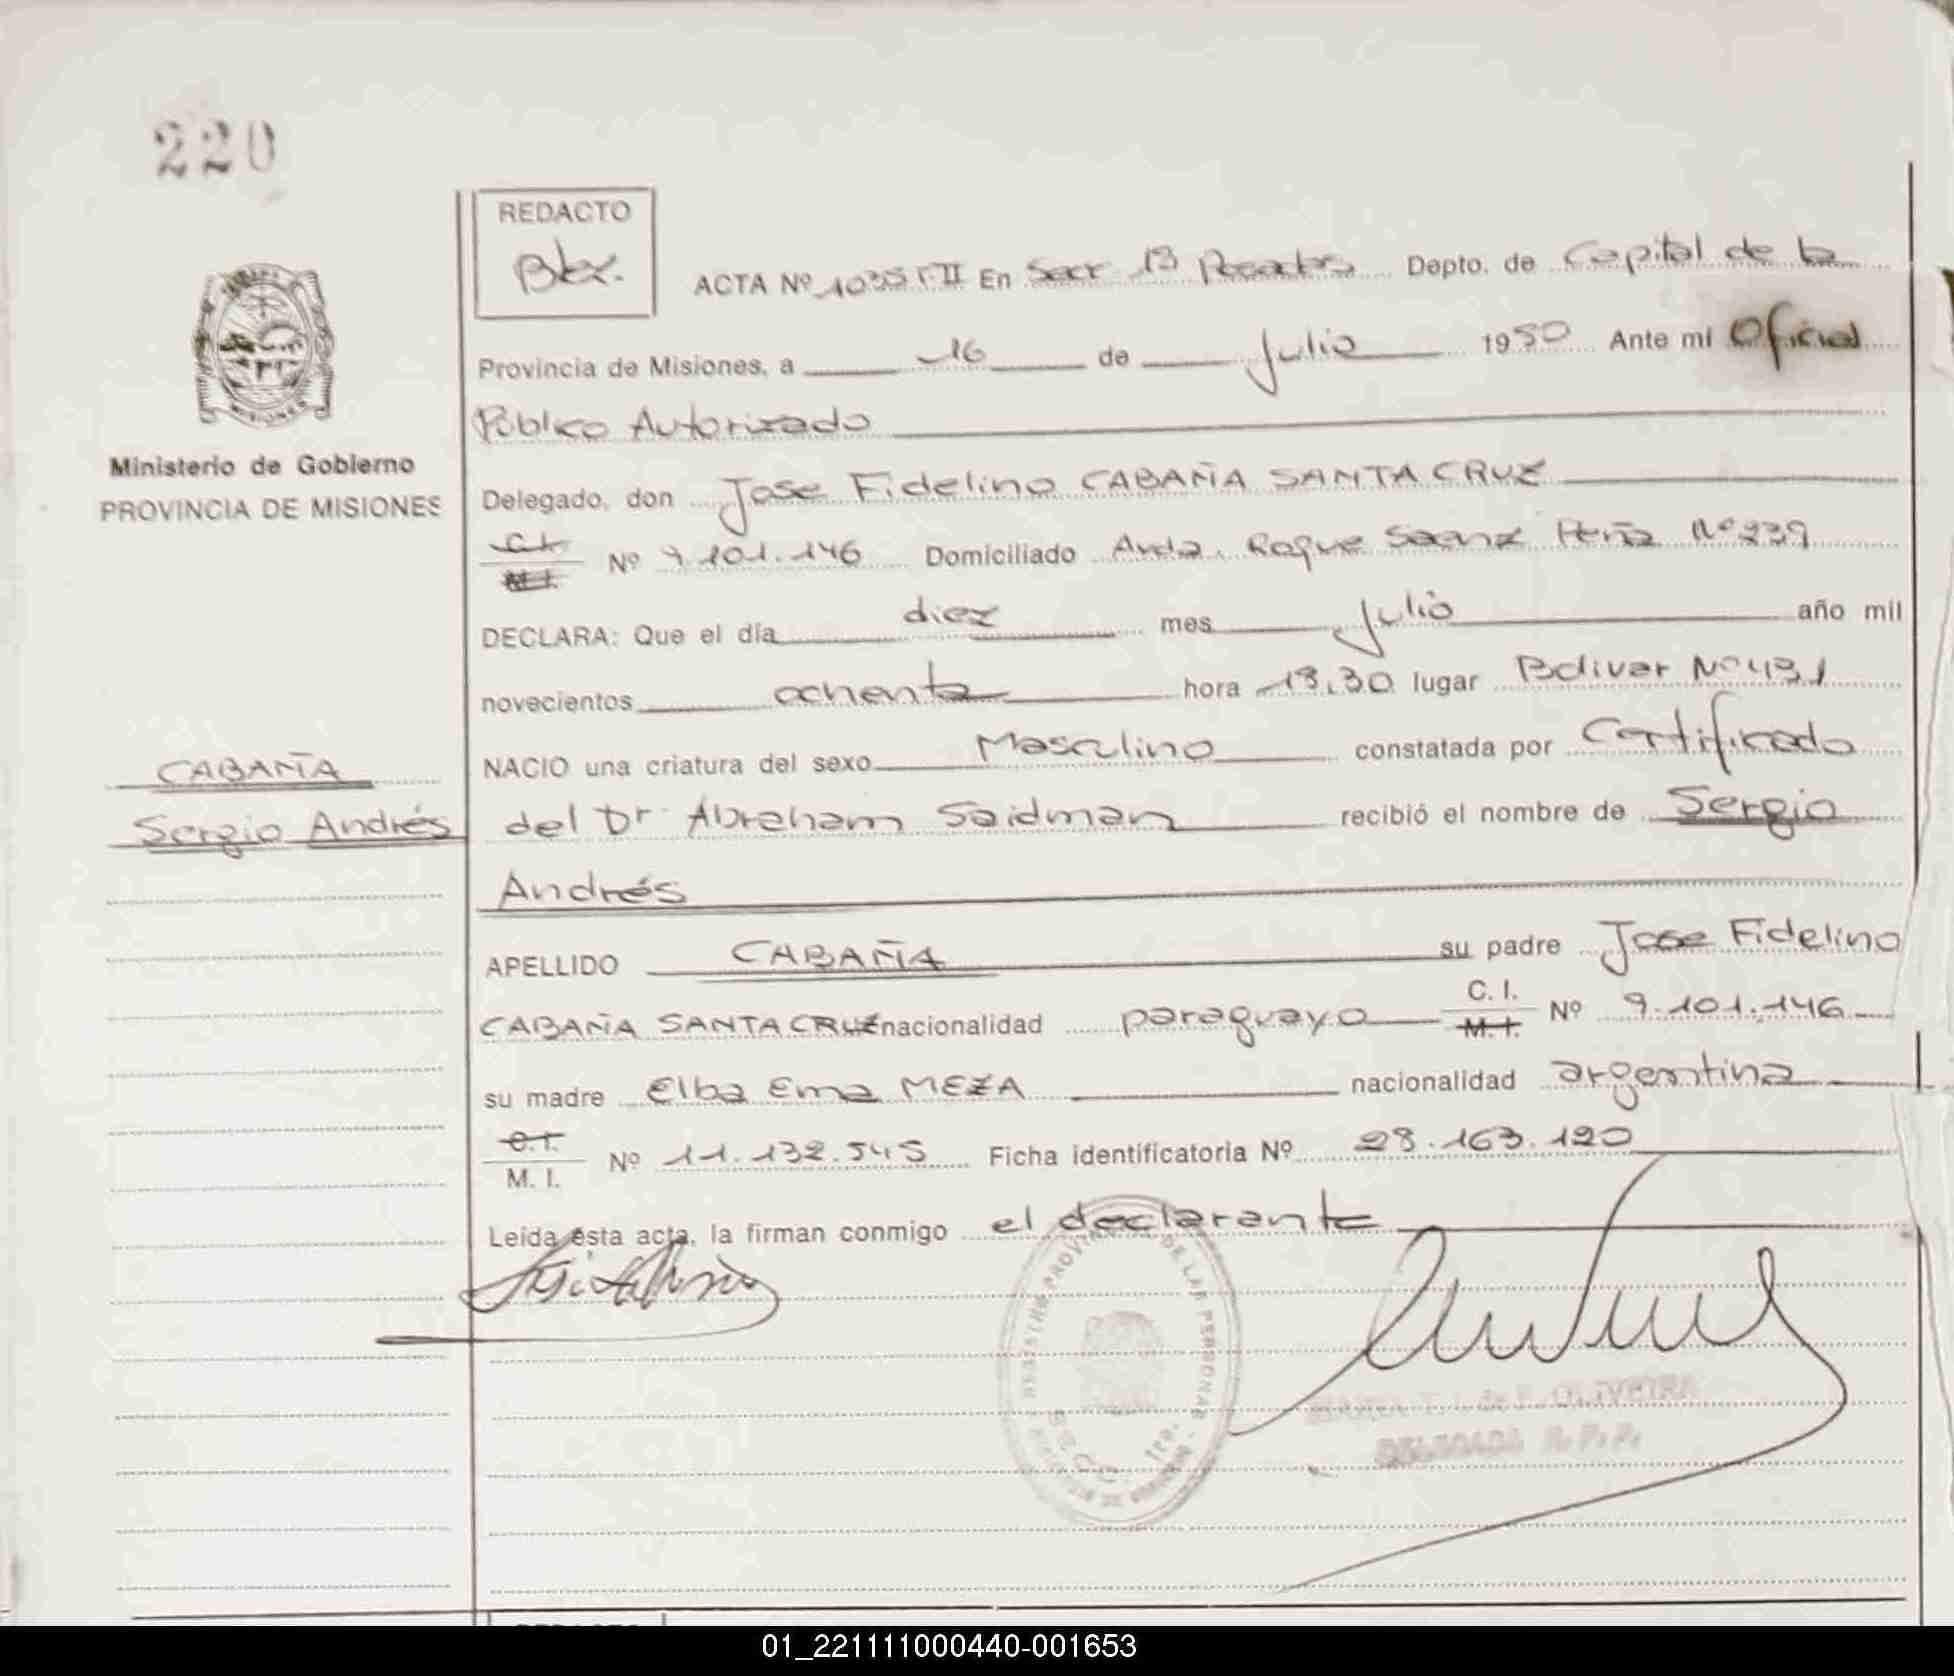 220
REDACTO
ACTA Nº 1035 T II En Secc 1ª Posadas Depto. de Capital de la
Provincia de Misiones, a 16 de Julio 1980 Ante mí Oficial
Público Autorizado
Ministerio de Gobierno
PROVINCIA DE MISIONES
Delegado, don Jose Fidelino CABAÑA SANTA CRUZ
C.I. M.I. Nº 9.101.146 Domiciliado Avda. Roque Saenz Peña Nº 239
DECLARA: Que el día diez mes Julio año mil
novecientos ochenta hora 13,30 lugar Bolivar Nº 431
CABAÑA
NACIO una criatura del sexo Masculino constatada por Certificado
Sergio Andrés
del Dr Abraham Saidman recibió el nombre de Sergio
Andrés
APELLIDO CABAÑA su padre Jose Fidelino
CABAÑA SANTA CRUZ nacionalidad paraguayo C. I. M. I. Nº 9.101.146
su madre Elba Ema MEZA nacionalidad argentina
C. I. M. I. Nº 11.132.545 Ficha identificatoria Nº 28.163.120
Leida ésta acta, la firman conmigo el declarante
REGISTRO PROVINCIAL DE LAS PERSONAS
OLIVEIRA
DELEGADA R. P. P.
01_221111000440-001653